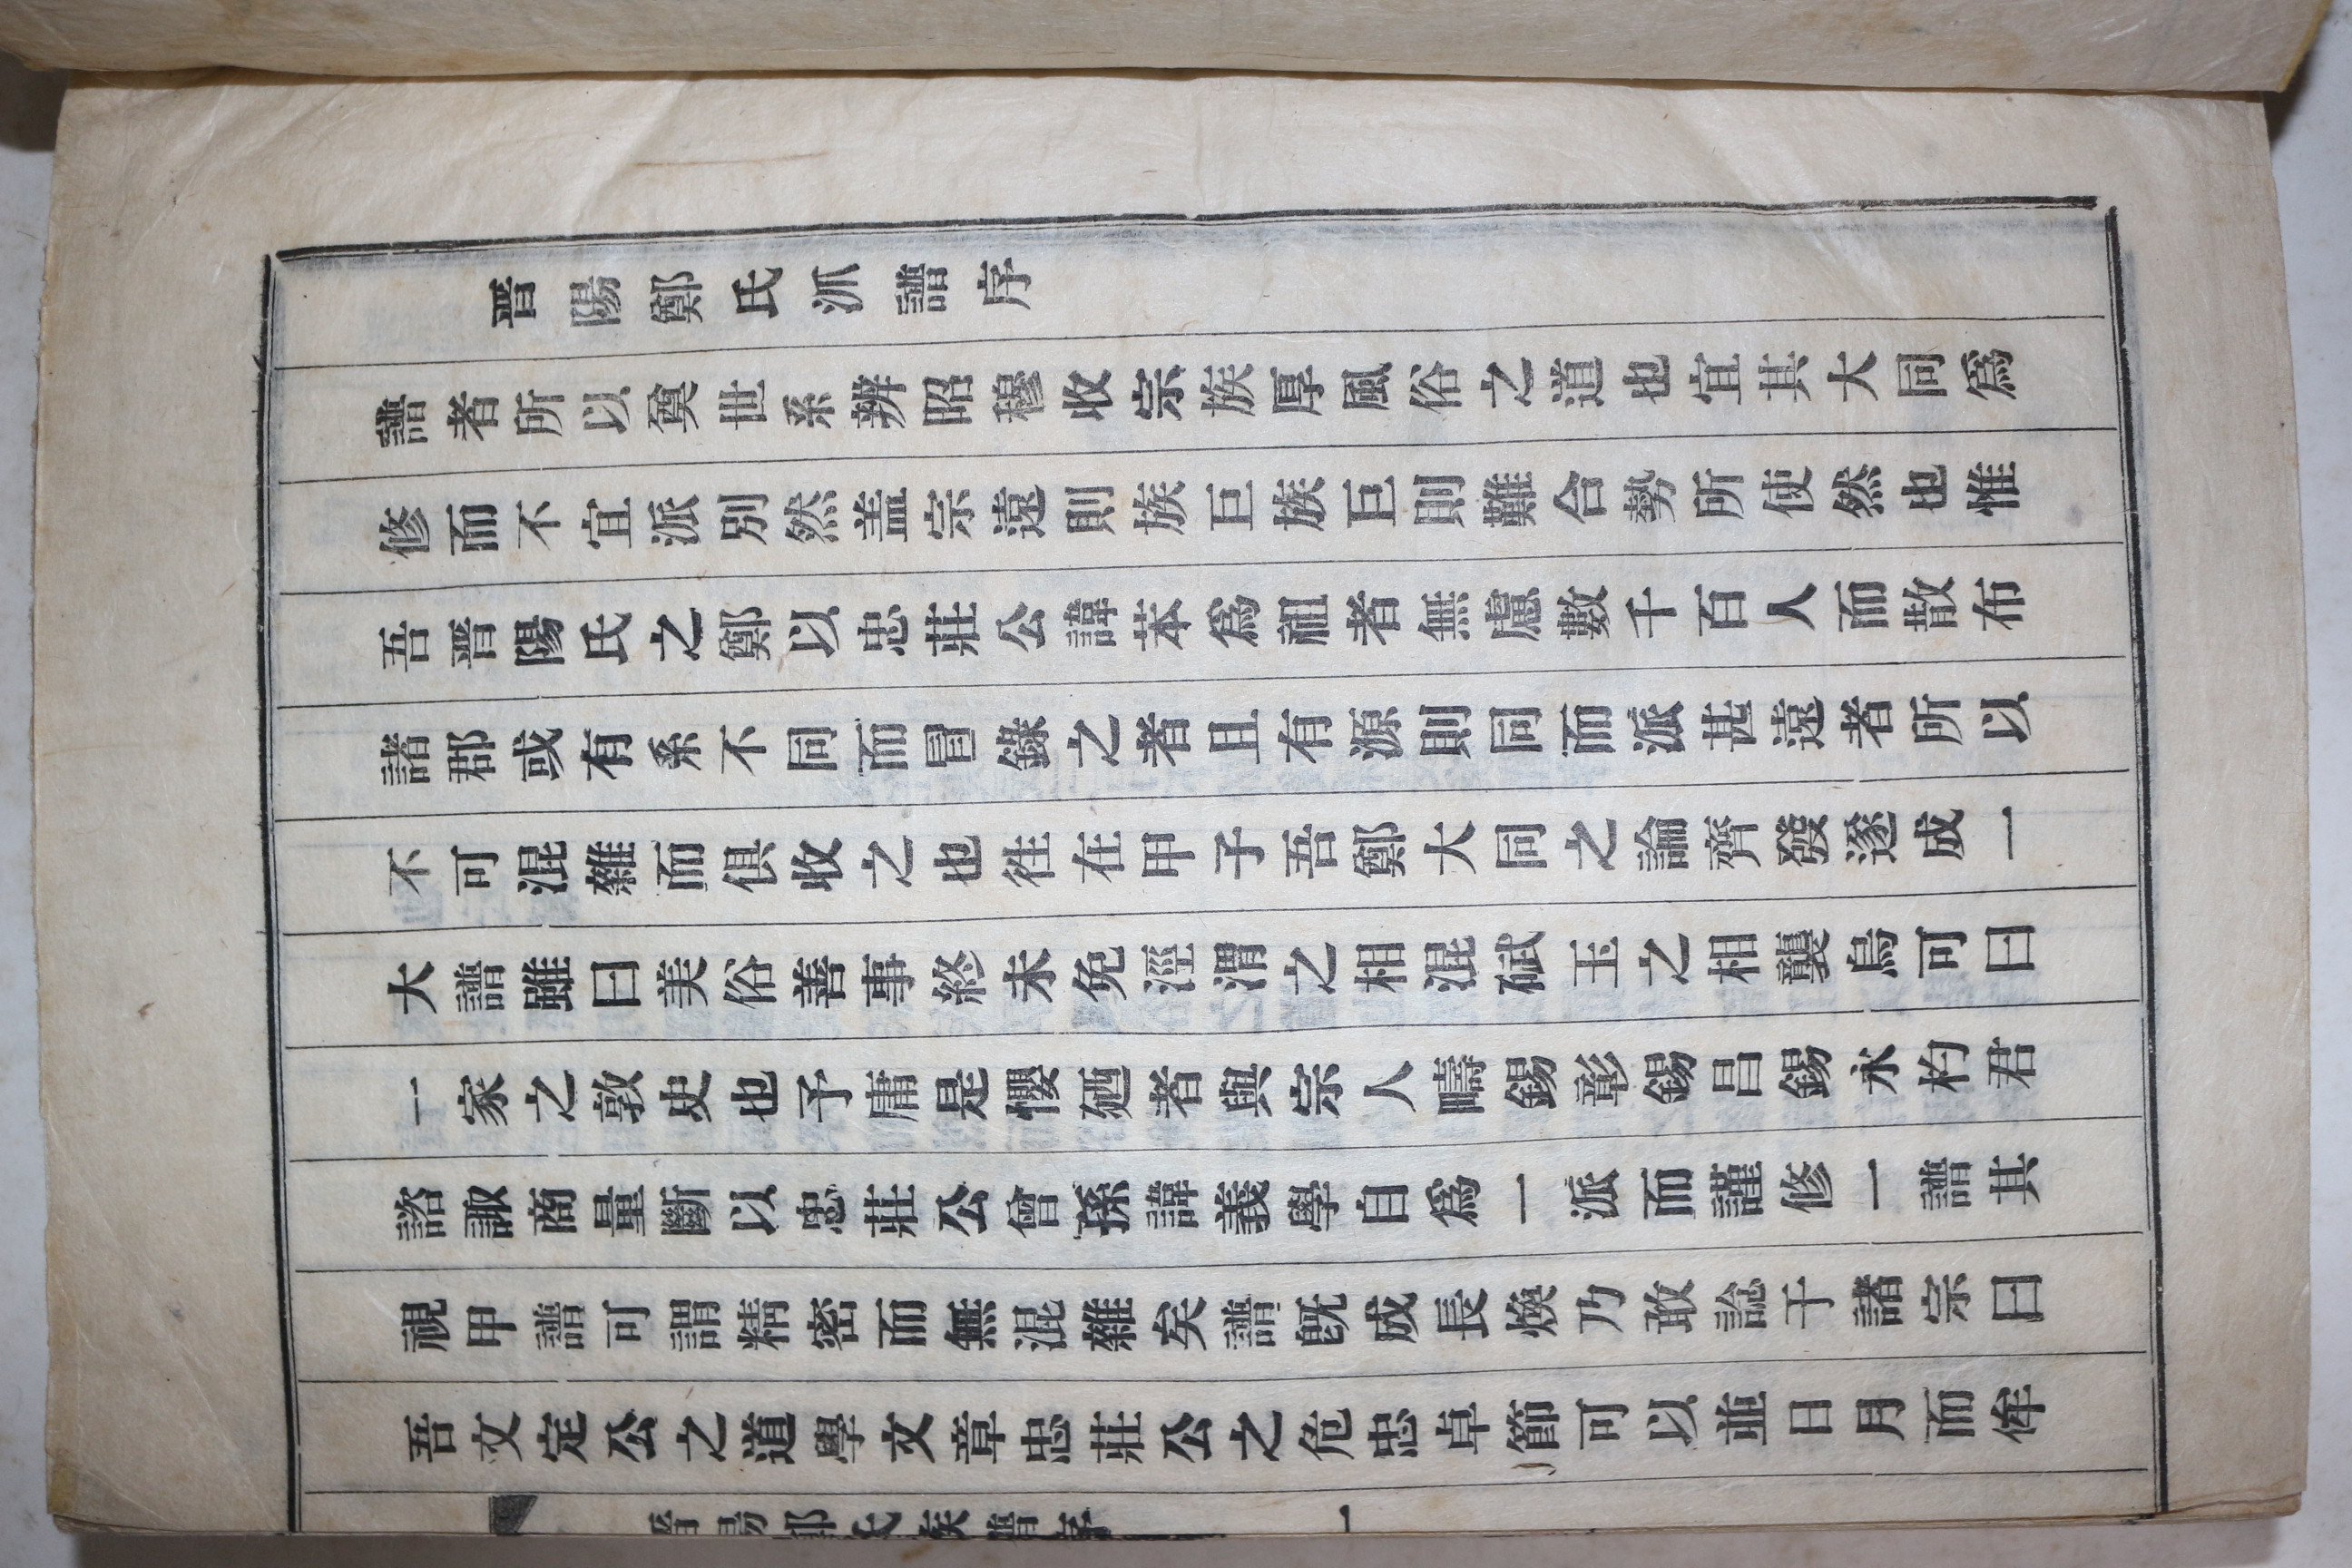 晋陽鄭氏派譜序
譜者所以奠世系辨昭穆收宗族厚風俗之道也宜其大同爲
修而不宜派別然盖宗遠則族巨族巨則難合勢所使然也惟
吾晋陽氏之鄭以忠莊公諱苯爲祖者無慮數千百人而散布
諸郡或有系不同而冒錄之者且有源則同而派甚遠者所以
不可混雜而俱收之也徃在甲子吾鄭大同之論齊發遂成一
大譜雖曰美俗善事終未免涇渭之相混碔玉之相襲烏可曰
一家之敦史也予庸是懼廼者與宗人疇錫彰錫昌錫永杓君
諮諏商量斷以忠莊公曾孫諱義學自爲一派而謹修一譜其
視甲譜可謂精密而無混雜矣譜旣成長煥乃敢諗于諸宗曰
吾文定公之道學文章忠莊公之危忠卓節可以並日月而侔
晋陽鄭氏族譜序 一